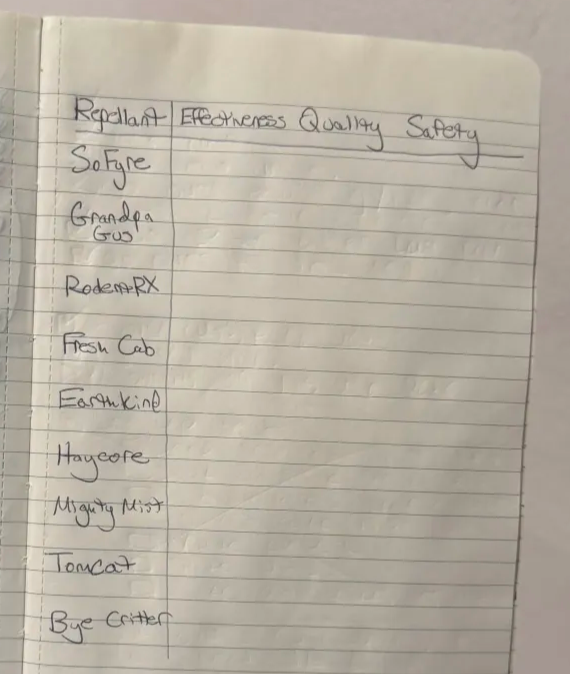 Repellant Effectiveness Quality Safety
SoFyre
Grandpa
Gus
RodentRX
Fresh Cab
Earthkind
Haycore
Mighty Mist
Tomcat
Bye Critter